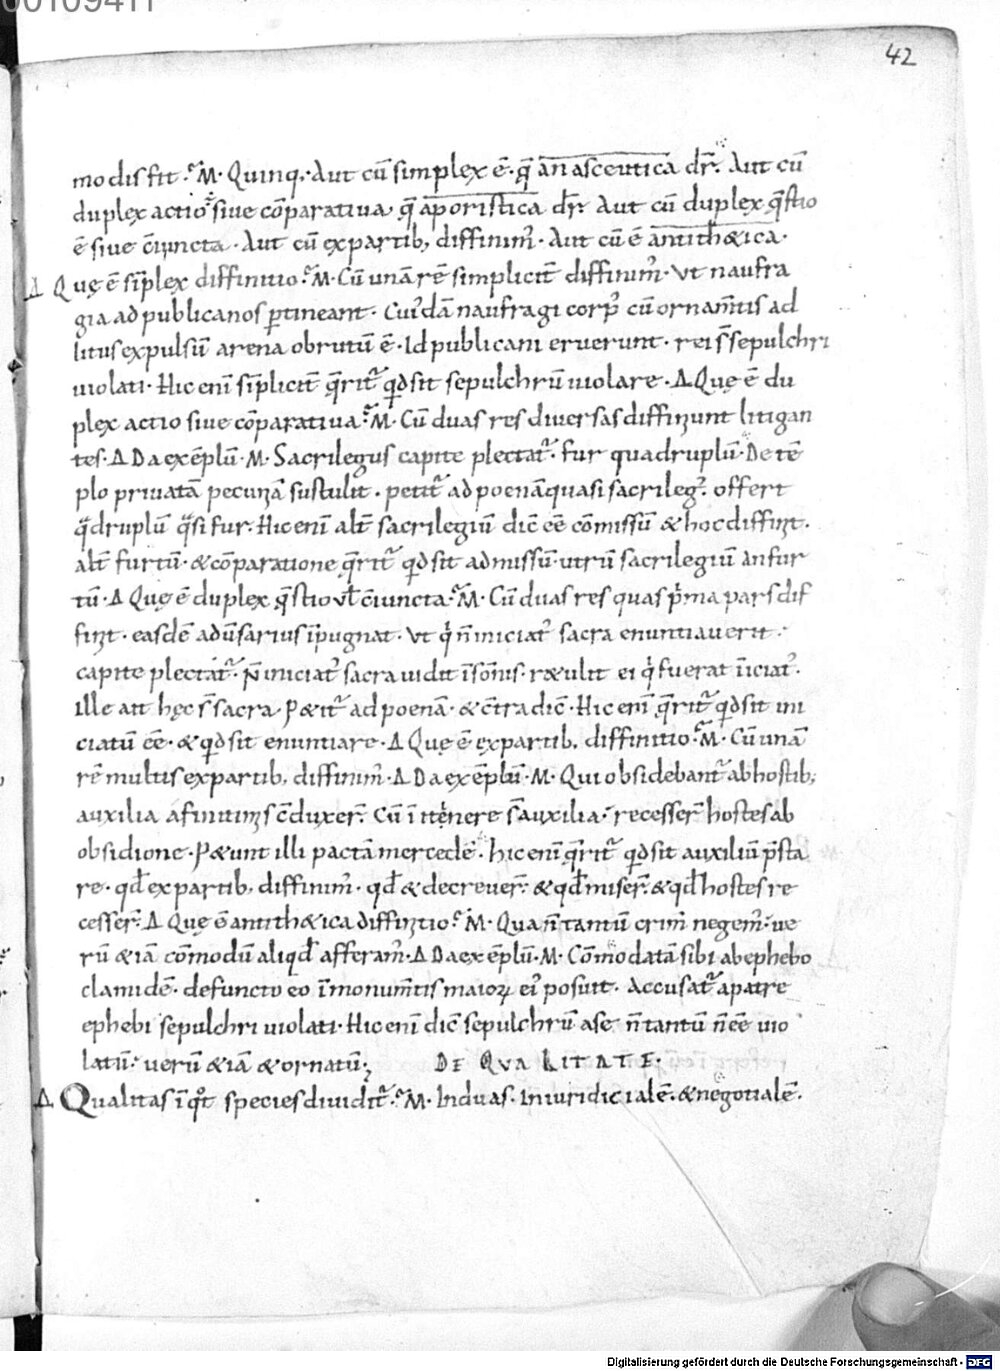 00109411
42
modis fit·M· Quinq;· Aut cū simplex ē· quę anasceutica dr̄· Aut cū
duplex actio· siue cōparatiua, quę aporistica dr̄· Aut cū duplex q̄stio
ē siue c̄iuncta· Aut cū ex partib; diffinim̄· Aut cū ē antithetica·
Δ Quę ē sīplex diffinitio· M· Cū unā rē simplicit̄ diffinim̄· Vt naufra
gia ad publicanos ptineant· Cuiᵈdā naufragi corp̄ cū ornam̄tis ad
litus expulsū arena obrutū ē· Id publicani eruerunt· rei s̄ sepulchri
uiolati· Hic enī sīplicit̄ q̄rit̄ qd sit sepulchrū uiolare· Δ Quę ē du
plex actio siue cōparatiua· M· Cū duas res diuersas diffiniunt litigan
tes· Δ Da exēplū· M· Sacrilegus capite plectat̄· fur quadruplū· De tē
plo priuatā pecuniā sustulit· petit̄ ad poenā quasi sacrileḡ· offert
q̄druplū q̄si fur· Hic enī alt̄ sacrilegiū dic̄ eē cōmissū & hoc diffinit·
alt̄ furtū· & cōparatione q̄rit̄ qd sit admissū· utrū sacrilegiū an fur
tū· Δ Quę ē duplex q̄stio ul̄ c̄iuncta· M· Cū duas res quas p̄ma pars dif
finit· easdē aduīsarius īpugnat· Vt q̄ n̄ iniciat̄ sacra enuntiauerit·
capite plectat̄· N̄ iniciat̄ sacra uidit ī sōnis· r&ulit ei q̄ fuerat īiciat̄·
ille ait hęc s̄ sacra· P&it̄ ad poenā· & c̄tradic̄· Hic enī q̄rit̄ qd sit ini
ciatū eē· & qd sit enuntiare· Δ Quę ē ex partib; diffinitio· M· Cū unā
rē multis ex partib; diffinim̄· Δ Da exēplū· M· Qui obsidebant̄ ab hostib;
auxilia a finitimis c̄duxer̄· Cū ī itenere s̄ auxilia· recesser̄ hostes ab
obsidione· P&unt illi pactā mercedē· hic enī q̄rit̄ qd sit auxiliū p̄sta
re· qd̄ ex partib; diffinim̄· qd̄ & decreuer̄· & qd̄ miser̄· & qd̄ hostes re
cesser̄· Δ Quę ē antith&ica diffinitio· M· Qua n̄ tantū crim̄ negem̄· ue
rū &iā cōmodū aliqd̄ afferam̄· Δ Da exēplū· M· Cōmodatā sibi ab ephebo
clamidē· defuncto eo ī monum̄tis maioꝝ ei᾿ posuit· Accusat̄ a patre
ephebi sepulchri uiolati· Hic enī dic̄ sepulchrū a se n̄ tantū n̄ eē uio
latū· uerū &iā & ornatū; DE QVALITATE·
Δ Qualitas ī qͦt species diuidit̄· M· In duas· In iuridicialē· & negotialē·
Digitalisierung gefördert durch die Deutsche Forschungsgemeinschaft - DFG